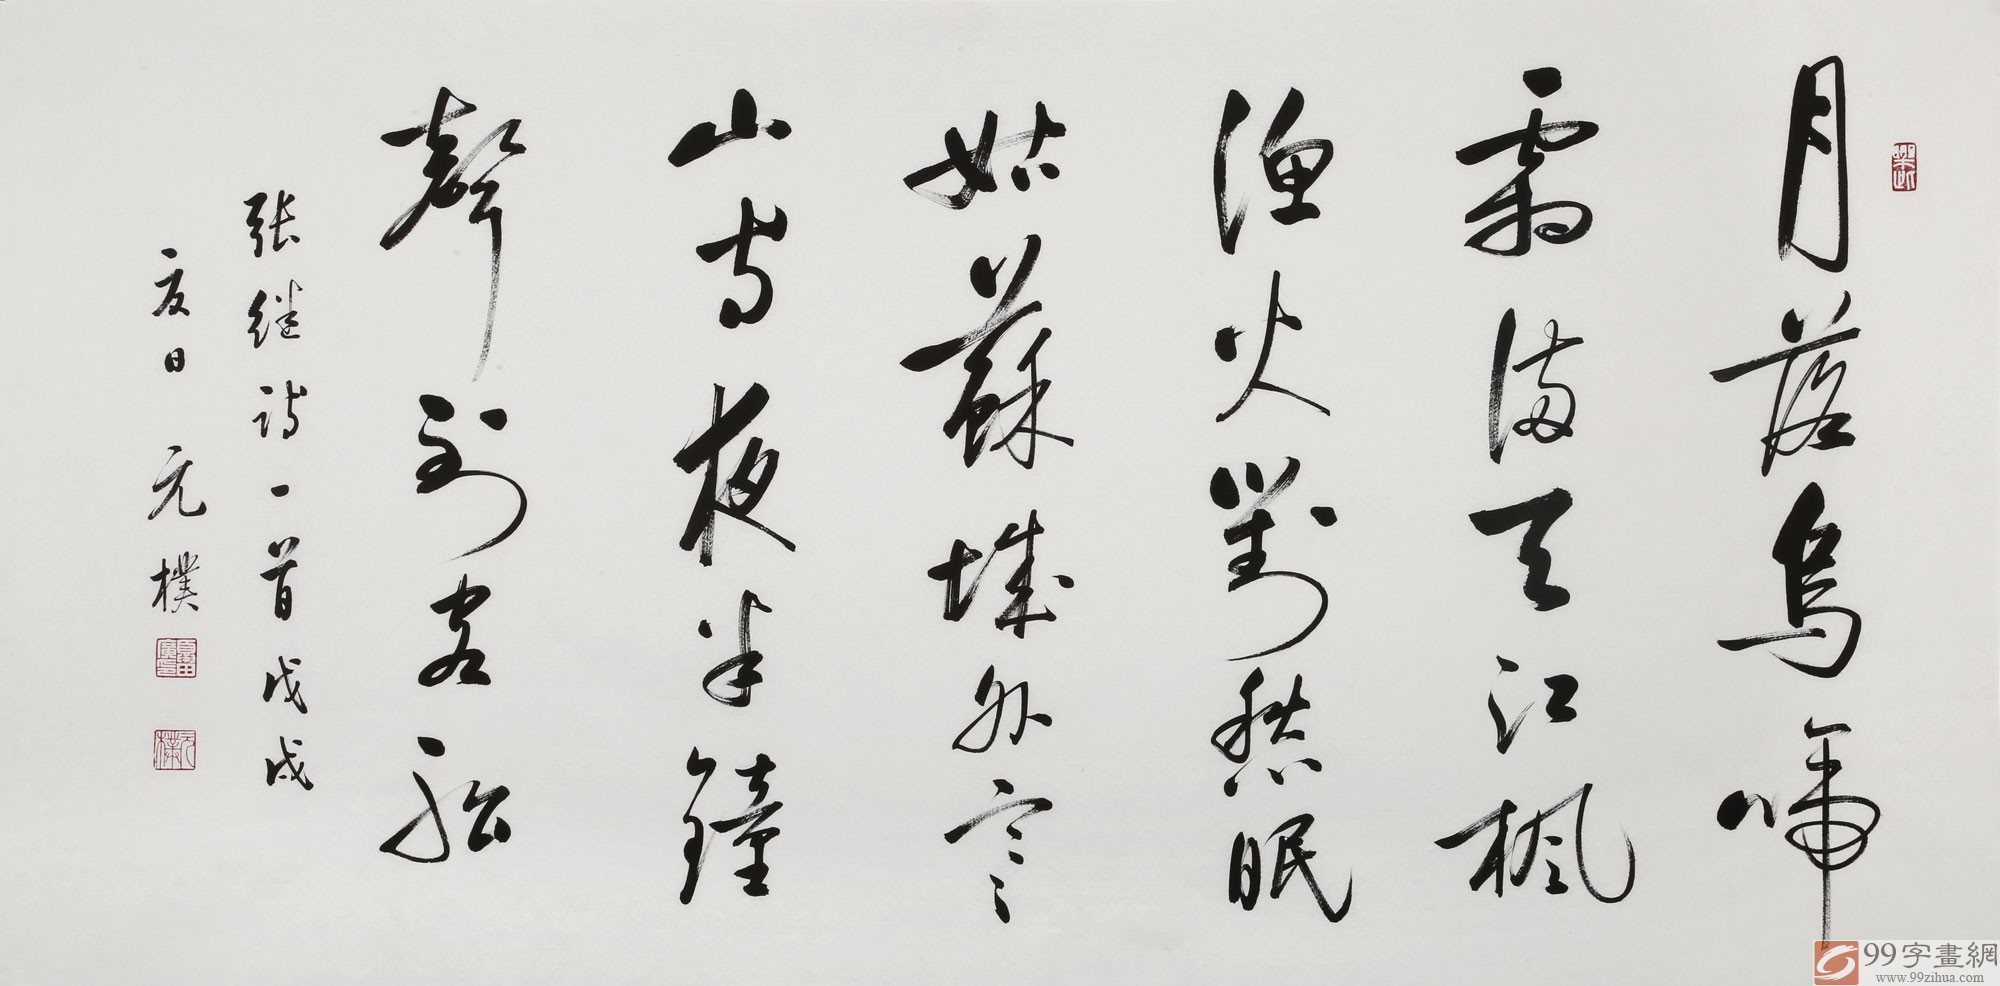 月落烏啼
霜满天江楓
渔火對愁眠
姑蘇城外寒
山寺夜半鐘
聲到客船
张继诗一首戊戌
夏日元樸
99字畫網
www.99zihua.com